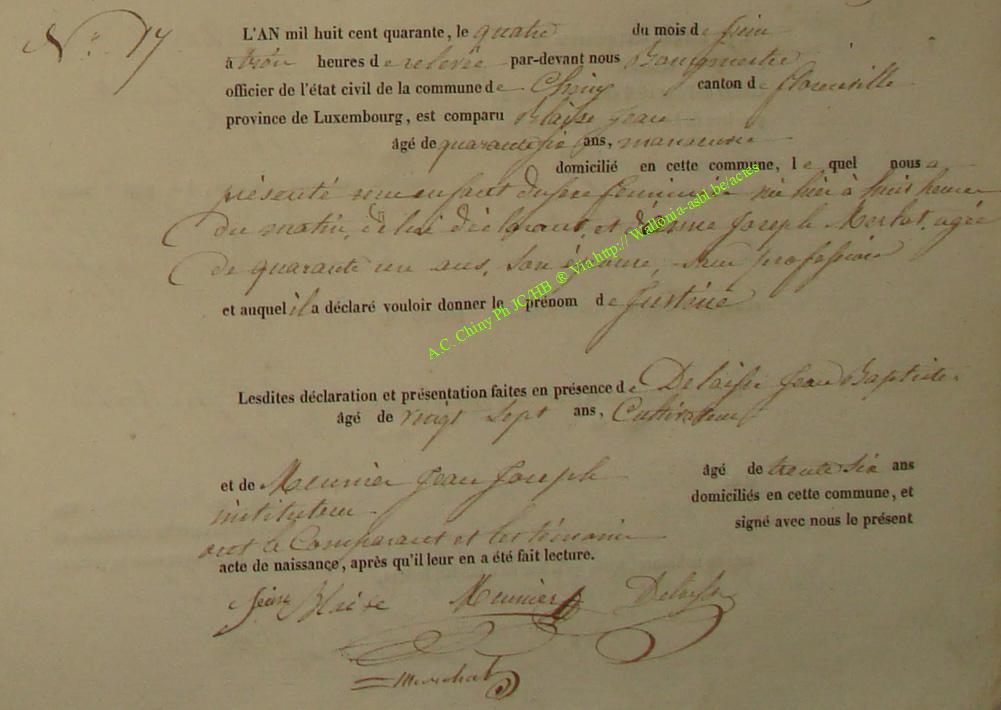 N° 17
L'AN mil huit cent quarante, le quatre du mois de juin
à trois heures de relevée par-devant nous Bourgmestre
officier de l'état civil de la commune de Chiny canton de florenville
province de Luxembourg, est comparu Blaise Jean
âgé de quarante six ans, manoeuvre
domicilié en cette commune, lequel nous a
présenté un enfant du sexe féminin né hier à huit heures
du matin, de lui déclarant, et d'Anne Joseph Merlot, agée
de quarante un ans, son épouse, sans profession
et auquel il a déclaré vouloir donner le prénom de Justine
Lesdites déclaration et présentation faites en présence de Delaisse Jean Baptiste
âgé de vingt sept ans, Cultivateur
et de Meunier Jean Joseph âgé de trente six ans
instituteur. domiciliés en cette commune, et
ont le Comparant et les témoins signé avec nous le présent
acte de naissance, après qu'il leur en a été fait lecture.
Jean Blaise Meunier Delaisse
Marechal
A.C. Chiny Ph JC/HB ® Via http:// Wallonia-asbl.be/actes